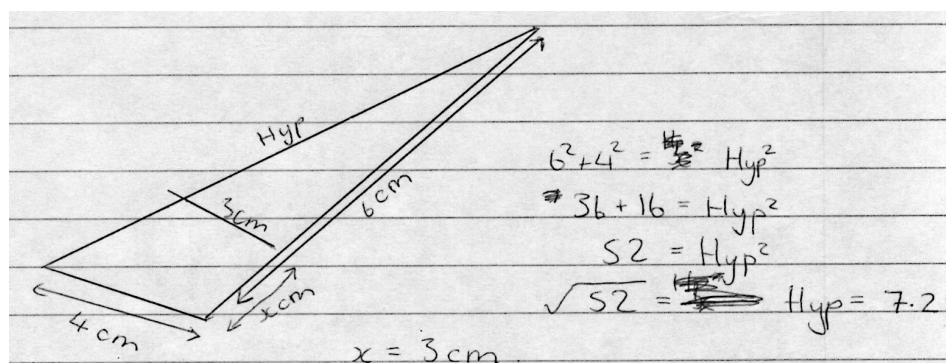 Hyp
3cm
6cm
x cm
4 cm
x = 3 cm.
6² + 4² = Hyp²
36 + 16 = Hyp²
52 = Hyp²
√52 = Hyp = 7.2